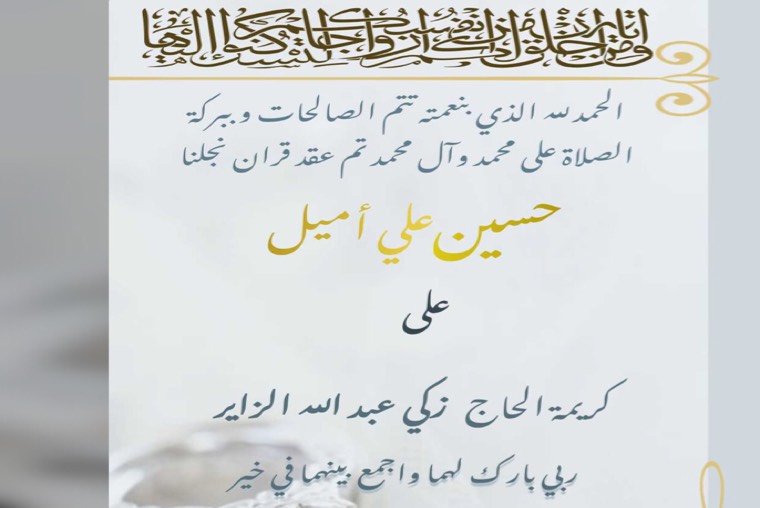 ومن آياته أن خلق لكم من أنفسكم أزواجا لتسكنوا إليها
الحمد لله الذي بنعمته تتم الصالحات وببركة
الصلاة على محمد وآل محمد تم عقد قران نجلنا
حسين علي أميل
على
كريمة الحاج زكي عبد الله الزاير
ربي بارك لهما واجمع بينهما في خير